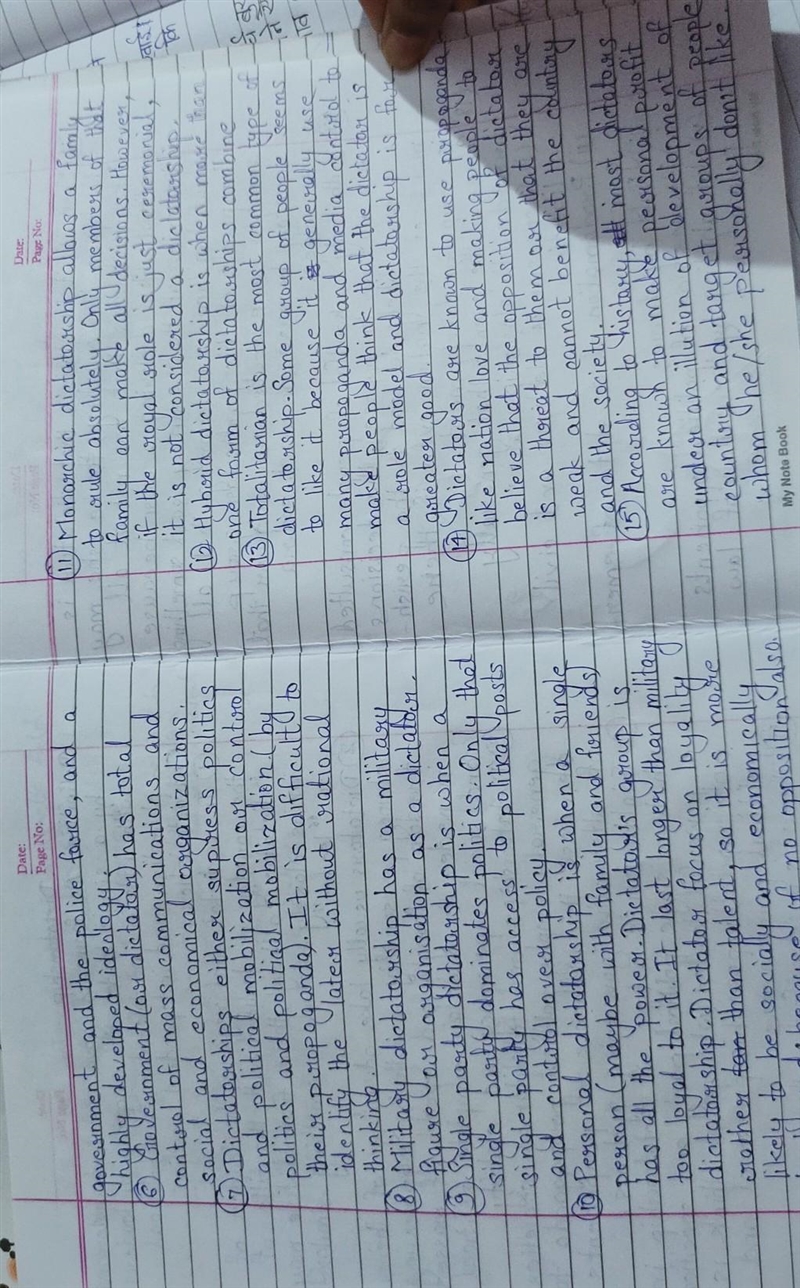 Date:
Page No:
government and the police force, and a
highly developed ideology.
⑥ Government (or dictator) has total
control of mass communications and
social and economical organizations.
⑦ Dictatorships either supress politics
and political mobilization or control
politics and political mobilization (by
their propaganda). It is difficult to
identify the later without rational
thinking.
⑧ Military dictatorship has a military
figure or organisation as a dictator.
⑨ Single party dictatorship is when a
single party dominates politics. Only that
single party has access to political posts
and control over policy.
⑩ Personal dictatorship is when a single
person (maybe with family and friends)
has all the power. Dictator's group is
too loyal to it. It last longer than military
dictatorship. Dictator focus on loyality
rather than talent, so it is more
likely to be socially and economically
because if no opposition also.
Date:
Page No:
⑪ Monarchic dictatorship allows a family
to rule absolutely. Only members of that
family can make all decisions. However,
if the royal role is just ceremonial,
it is not considered a dictatorship.
⑫ Hybrid dictatorship is when more than
one form of dictatorships combine
⑬ Totalitarian is the most common type of
dictatorship. Some group of people seems
to like it because it generally use
many propaganda and media control to
make people think that the dictator is
a role model and dictatorship is for
greater good.
⑭ Dictators are known to use propaganda
like nation love and making people to
believe that the opposition of dictator
is a threat to them or that they are
weak and cannot benefit the country
and the society.
⑮ According to history, most dictators
are known to make personal profit
under an illution of development of
country and target groups of people
whom he/she personally don't like.
My Note Book